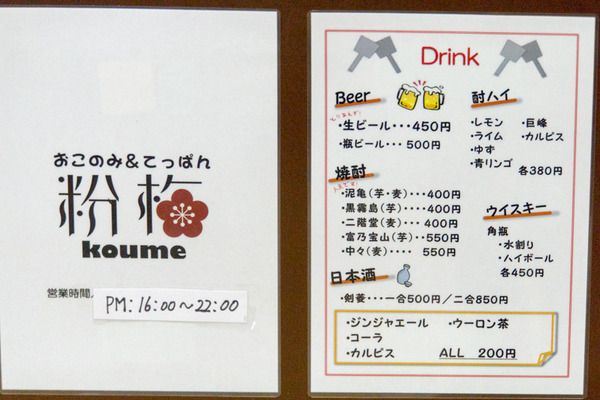 おこのみ&てっぱん
粉梅
koume
営業時間
PM: 16:00～22:00
Drink
Beer
・生ビール・・・450円
・瓶ビール・・・500円
焼酎
・泥亀(芋・麦)・・・400円
・黒霧島(芋)・・・・400円
・二階堂(麦)・・・ 400円
・富乃宝山(芋)・・550円
・中々(麦)・・・・ 550円
日本酒
・剣菱・・・一合500円／二合850円
酎ハイ
・レモン ・巨峰
・ライム ・カルピス
・ゆず
・青リンゴ
各380円
ウイスキー
角瓶
・水割り
・ハイボール
各450円
・ジンジャエール ・ウーロン茶
・コーラ
・カルピス ALL 200円